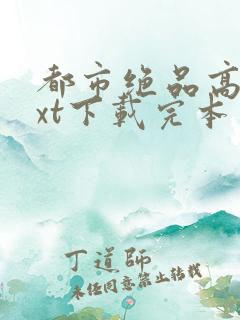 都市绝品高
xt下载完本
丁道师
未经同意禁止转载